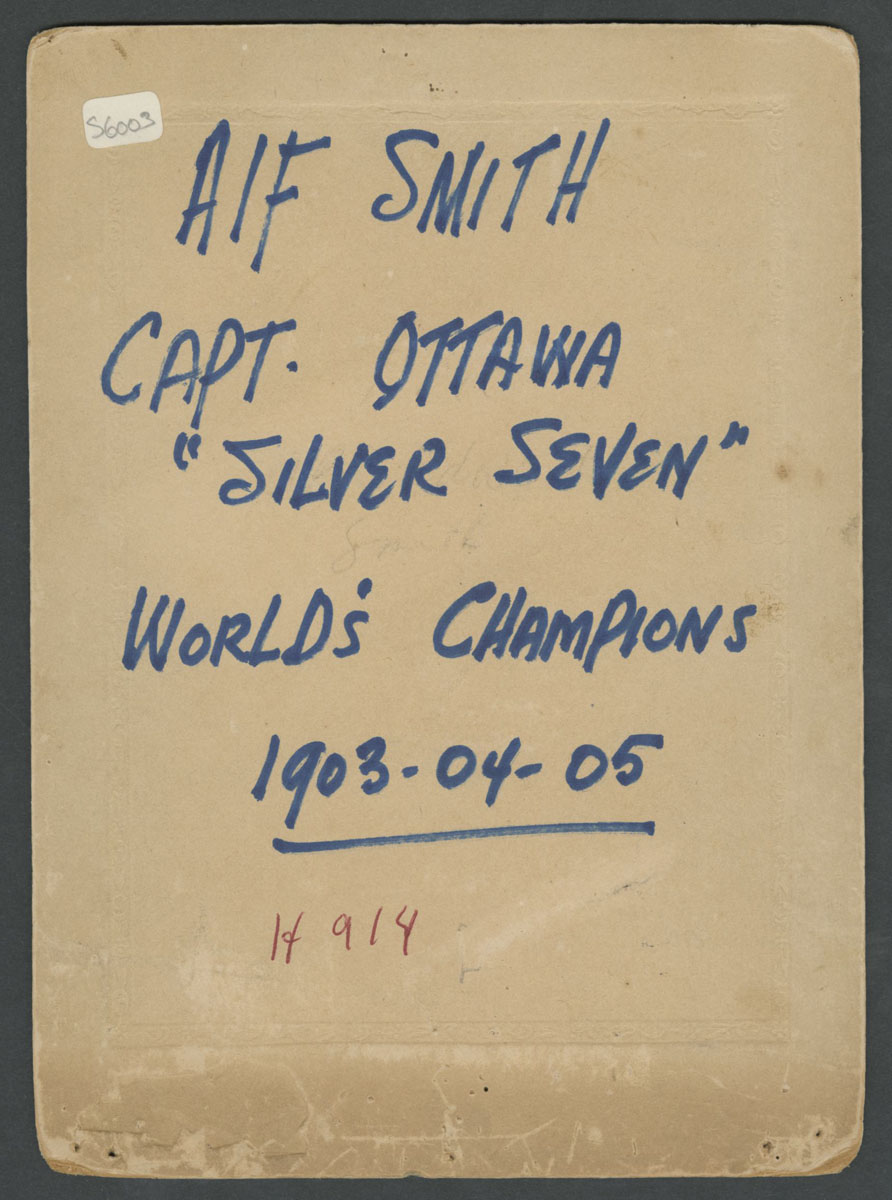 S6003
AlF SMITH
CAPT. OTTAWA
"SILVER SEVEN"
Smith
WORLD's CHAMPIONS
1903-04-05
H 914